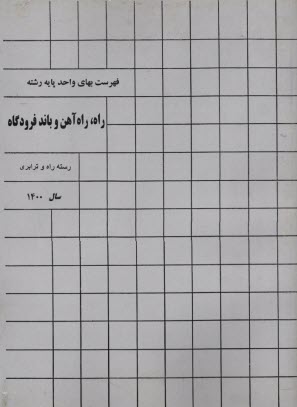 فهرست بهای واحد پایه رشته
راه، راه‌آهن و باند فرودگاه
رسته راه و ترابری
سال ۱۴۰۰